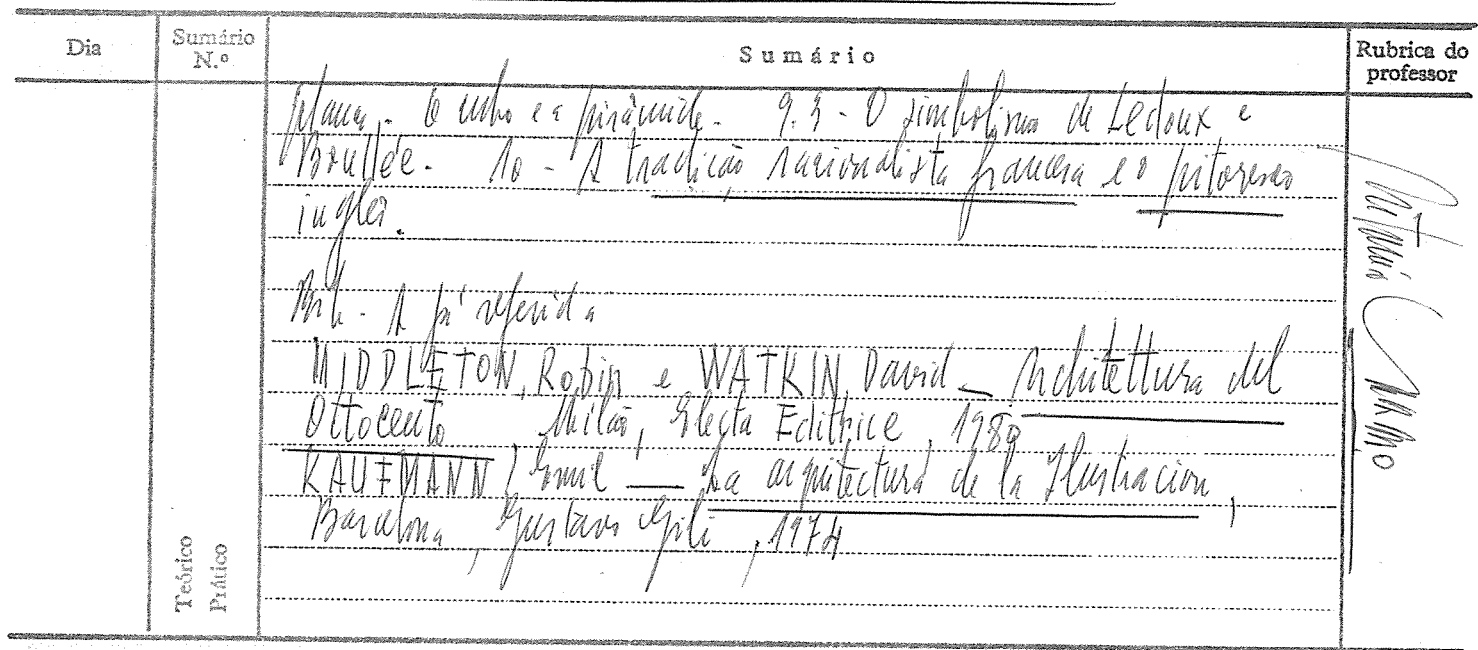 Dia
Sumário N.º
Sumário
Rubrica do professor
O cubo e a pirâmide. 9.3 - O simbolismo de Ledoux e
Boullée. 10 - A tradição racionalista francesa e o pitoresco
inglês.
Bib. - A já referida
MIDDLETON, Robin e WATKIN, David — Architettura del
Ottocento, Milão, Electa Editrice, 1980
KAUFMANN, Emil — La arquitectura de la Ilustracion,
Barcelona, Gustavo Gili, 1974
Teórico
Prático